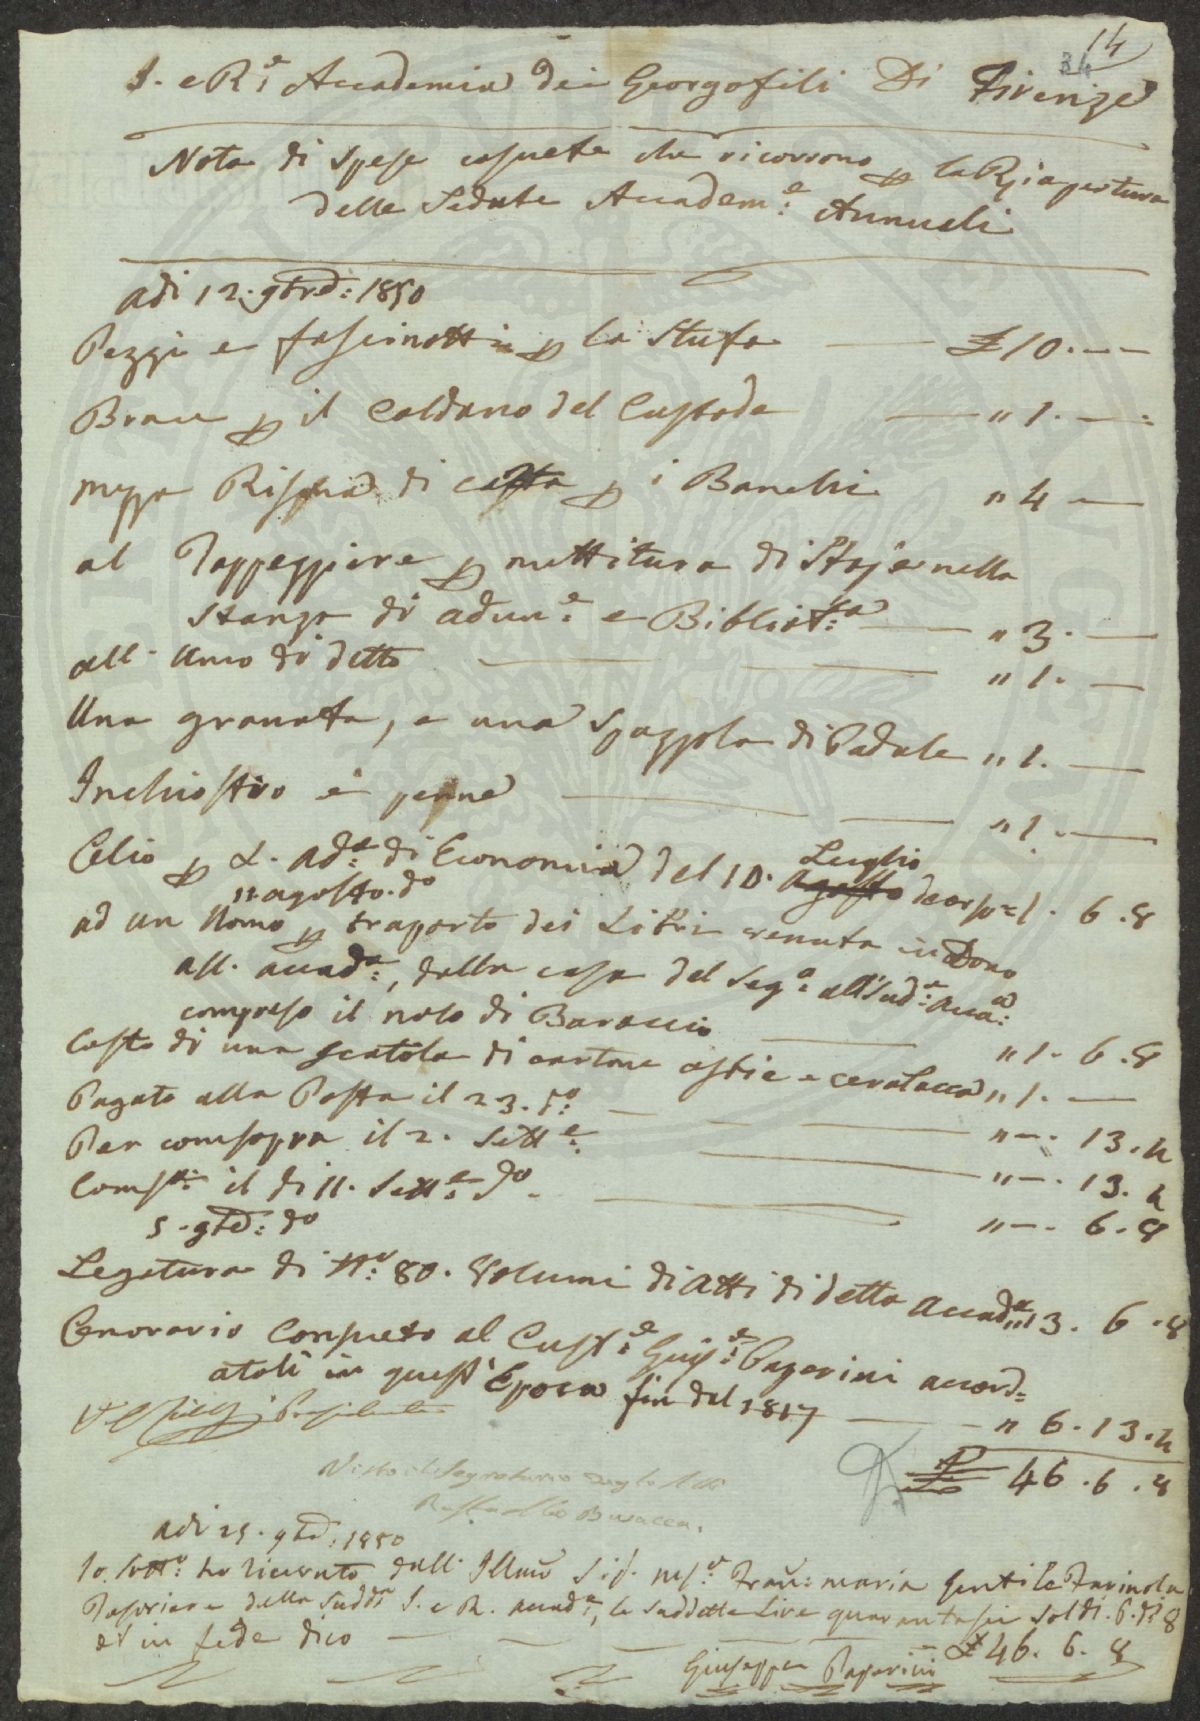 14
34
I. e R.e Accademia dei Georgofili Di Firenze
Nota di Spese consuete che ricorrono p la Riapertura
delle Sedute Accadem.e Annuali
adi 12. 9bre: 1850
Pezzi e fascinotti p la Stufa £ 10. —
Brace p il Caldano del Custode " 1. —
mezza Risma di carta p i Banchi " 4 —
al Tappezziere p mettitura di Stoje nella
Stanza di adun.e e Bibliot.a " 3. —
all' Uomo di detto " 1. —
Una granata, e una Spazzola di Padule " 1. —
Inchiostro e penne " 1. —
Olio p l. ad.a di Economia del 10. agosto Luglio decorso = 1. 6. 8
11 agosto. do
ad un Uomo p traporto dei Libri venuti in Dono
all. accad.a, dalla casa del Seg.o all'Sud.a Acca.a
compreso il nolo di Baroccio " 1. 6. 8
Costo di una scatola di cartone ostie e ceralacca " 1. —
Pagato alla Posta il 23. do " —. 13. 4
Per comsopra il 2. Sett.e " —. 13. 4
Comps.a il di 11. Sett.e do " —. 6. 8
5. 9bre: do
Legatura di N.o 80. Volumi di Atti di detta Accad.a " 13. 6. 8
Onorario Consueto al Cust.e Gius.e Paperini accord=
atoli in quest' Epoca fin dal 1817 " 6. 13. 4
Presidente
£ 46. 6. 8
Visto il Segretario degli Atti
Raffaello Busacca.
adi 25. 9bre: 1850
Io Sott.o ho ricevuto dall' Illmo Sig. M.e Fran: maria Gentile Farinola
Tesoriere della Sudd.a I. e R. Accad.a, le suddette Lire quarantasei Soldi. 6. di 8
ed in fede dico £ 46. 6. 8
Giuseppe Paperini